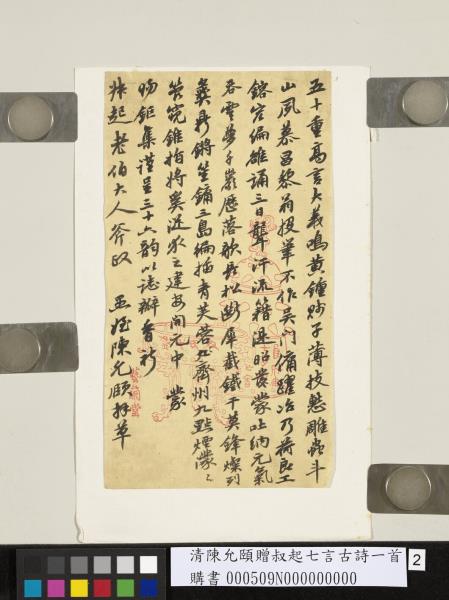 五十重高言大義鳴黃鍾賤子薄技慙雕蟲斗
山夙慕昌黎翁投筆不作吳門傭躍冶乃荷良工
鎔宏編雒誦三日聾汗流籍湜昭發蒙吐納元氣
吞雲夢千巖歷落歌長松斷犀截鐵干莫鋒燦列
彝鼎鏘笙鏞三島編插青芙蓉齊州九點煙濛濛
管窺錐指將奚從之建安開元中蒙
賜鉅集謹呈三十六韵以誌瓣香祈
叔起老伯大人斧政 姪陳允頤拜草
清陳允頤贈叔起七言古詩一首
購書 000509N000000000
2